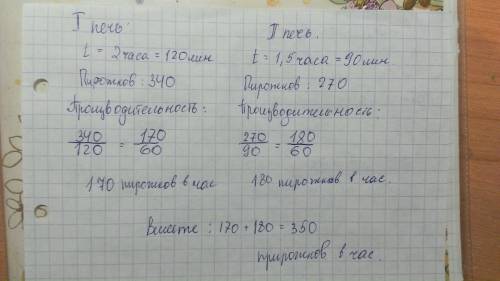 I печь:
t = 2 часа = 120 мин
Пирожков : 340
Производительность:
340/120 = 170/60
170 пирожков в час
II печь.
t = 1,5 часа = 90 мин.
Пирожков : 270
Производительность:
270/90 = 180/60
180 пирожков в час.
Вместе : 170 + 180 = 350
прирожков в час.